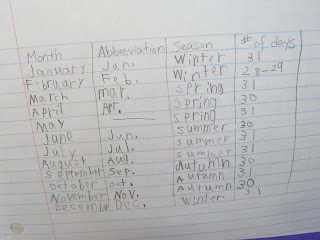 Month Abbreviation Season # of days
January Jan. Winter 31
February Feb. Winter 28-29
March mar. spring 31
April Apr. spring 30
May ——— spring 31
June Jun. summer 30
July Jul. summer 31
August Aug. summer 31
September Sep. Autumn 30
October oct. Autumn 31
November Nov. Autumn 30
December Dec. Winter 31